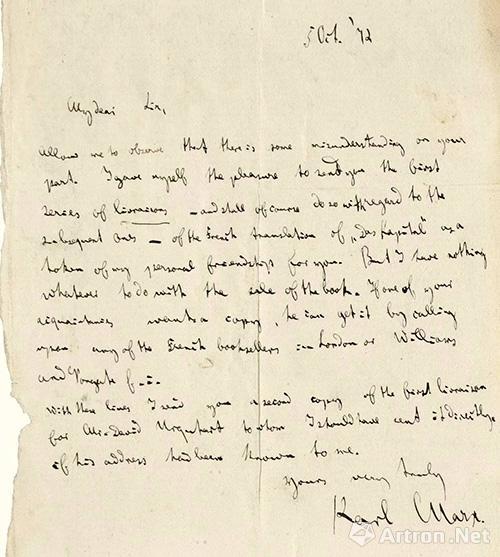 5 Oct. '72
My dear Sir,
Allow me to observe that there is some misunderstanding on your
part. I gave myself the pleasure to send you the first
series of livraisons – and shall of course do so with regard to the
subsequent ones – of the French translation of „Das Kapital" as a
token of my personal friendship for you. But I have nothing
whatever to do with the sale of the book. If one of your
acquaintances wants a copy, he can get it by calling
upon any of the French booksellers in London or Williams
and Norgate
With these lines I send you a second copy of the first livraison
for Mr. David Urquhart to whom I should have sent it directly
if his address had been known to me.
Yours very truly
Karl Marx.
Artron.Net